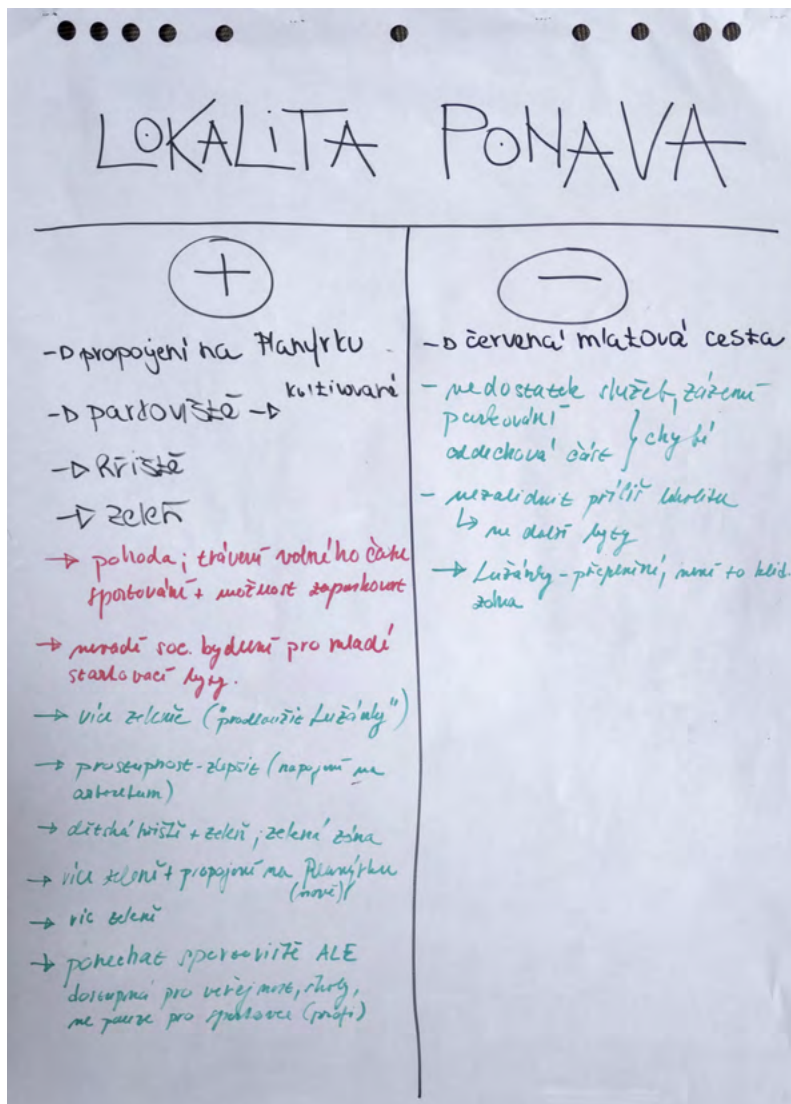 LOKALITA PONAVA
+
-> propojení na Planýrku
-> parkoviště -> kultivované
-> hřiště
-> zeleň
-> pohoda; trávení volného času
sportování + možnost zaparkovat
-> nevadí soc. bydlení pro mladé
startovací byty.
-> více zeleně ("prodloužit Lužánky")
-> prostupnost - zlepšit (napojení na
arboretum)
-> dětská hřiště + zeleň; zelená zóna
-> více zeleně + propojení na Planýrku
(nové)
-> víc zeleně
-> ponechat sportoviště ALE
dostupná pro veřejnost, školy,
ne pouze pro sportovce (profi)
−
-> červená mlatová cesta
- nedostatek služeb, zázemí
parkování
oddechová část } chybí
- nezalidnit příliš lokalitu
↳ ne další byty
-> Lužánky - přeplněné, není to klid.
zóna